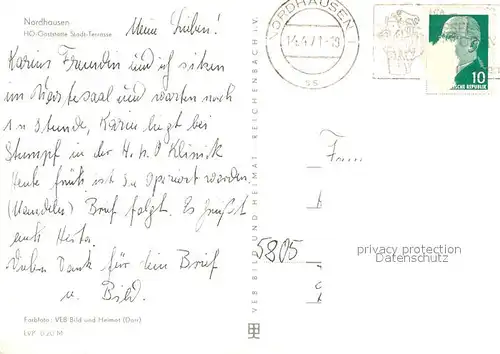 Nordhausen
HO-Gaststätte Stadt-Terrasse
Meine Lieben!
Karins Freundin und ich sitzen
im Wartesaal und warten noch
1 n stunde, Karin liegt bei
Stumpf in der H.N.O Klinik
Heute früh ist sie operiert worden.
(Mandeln) Brief folgt. Es grüßt
euch Herta.
Vielen Dank für dein Brief
u. Bild.
Farbfoto: VEB Bild und Heimat (Dorr)
EVP 0,20 M
VEB BILD UND HEIMAT REICHENBACH i.V.
NORDHAUSEN 1
14.4.71-18
10
DEUTSCHE REPUBLIK
5805
privacy protection
Datenschutz